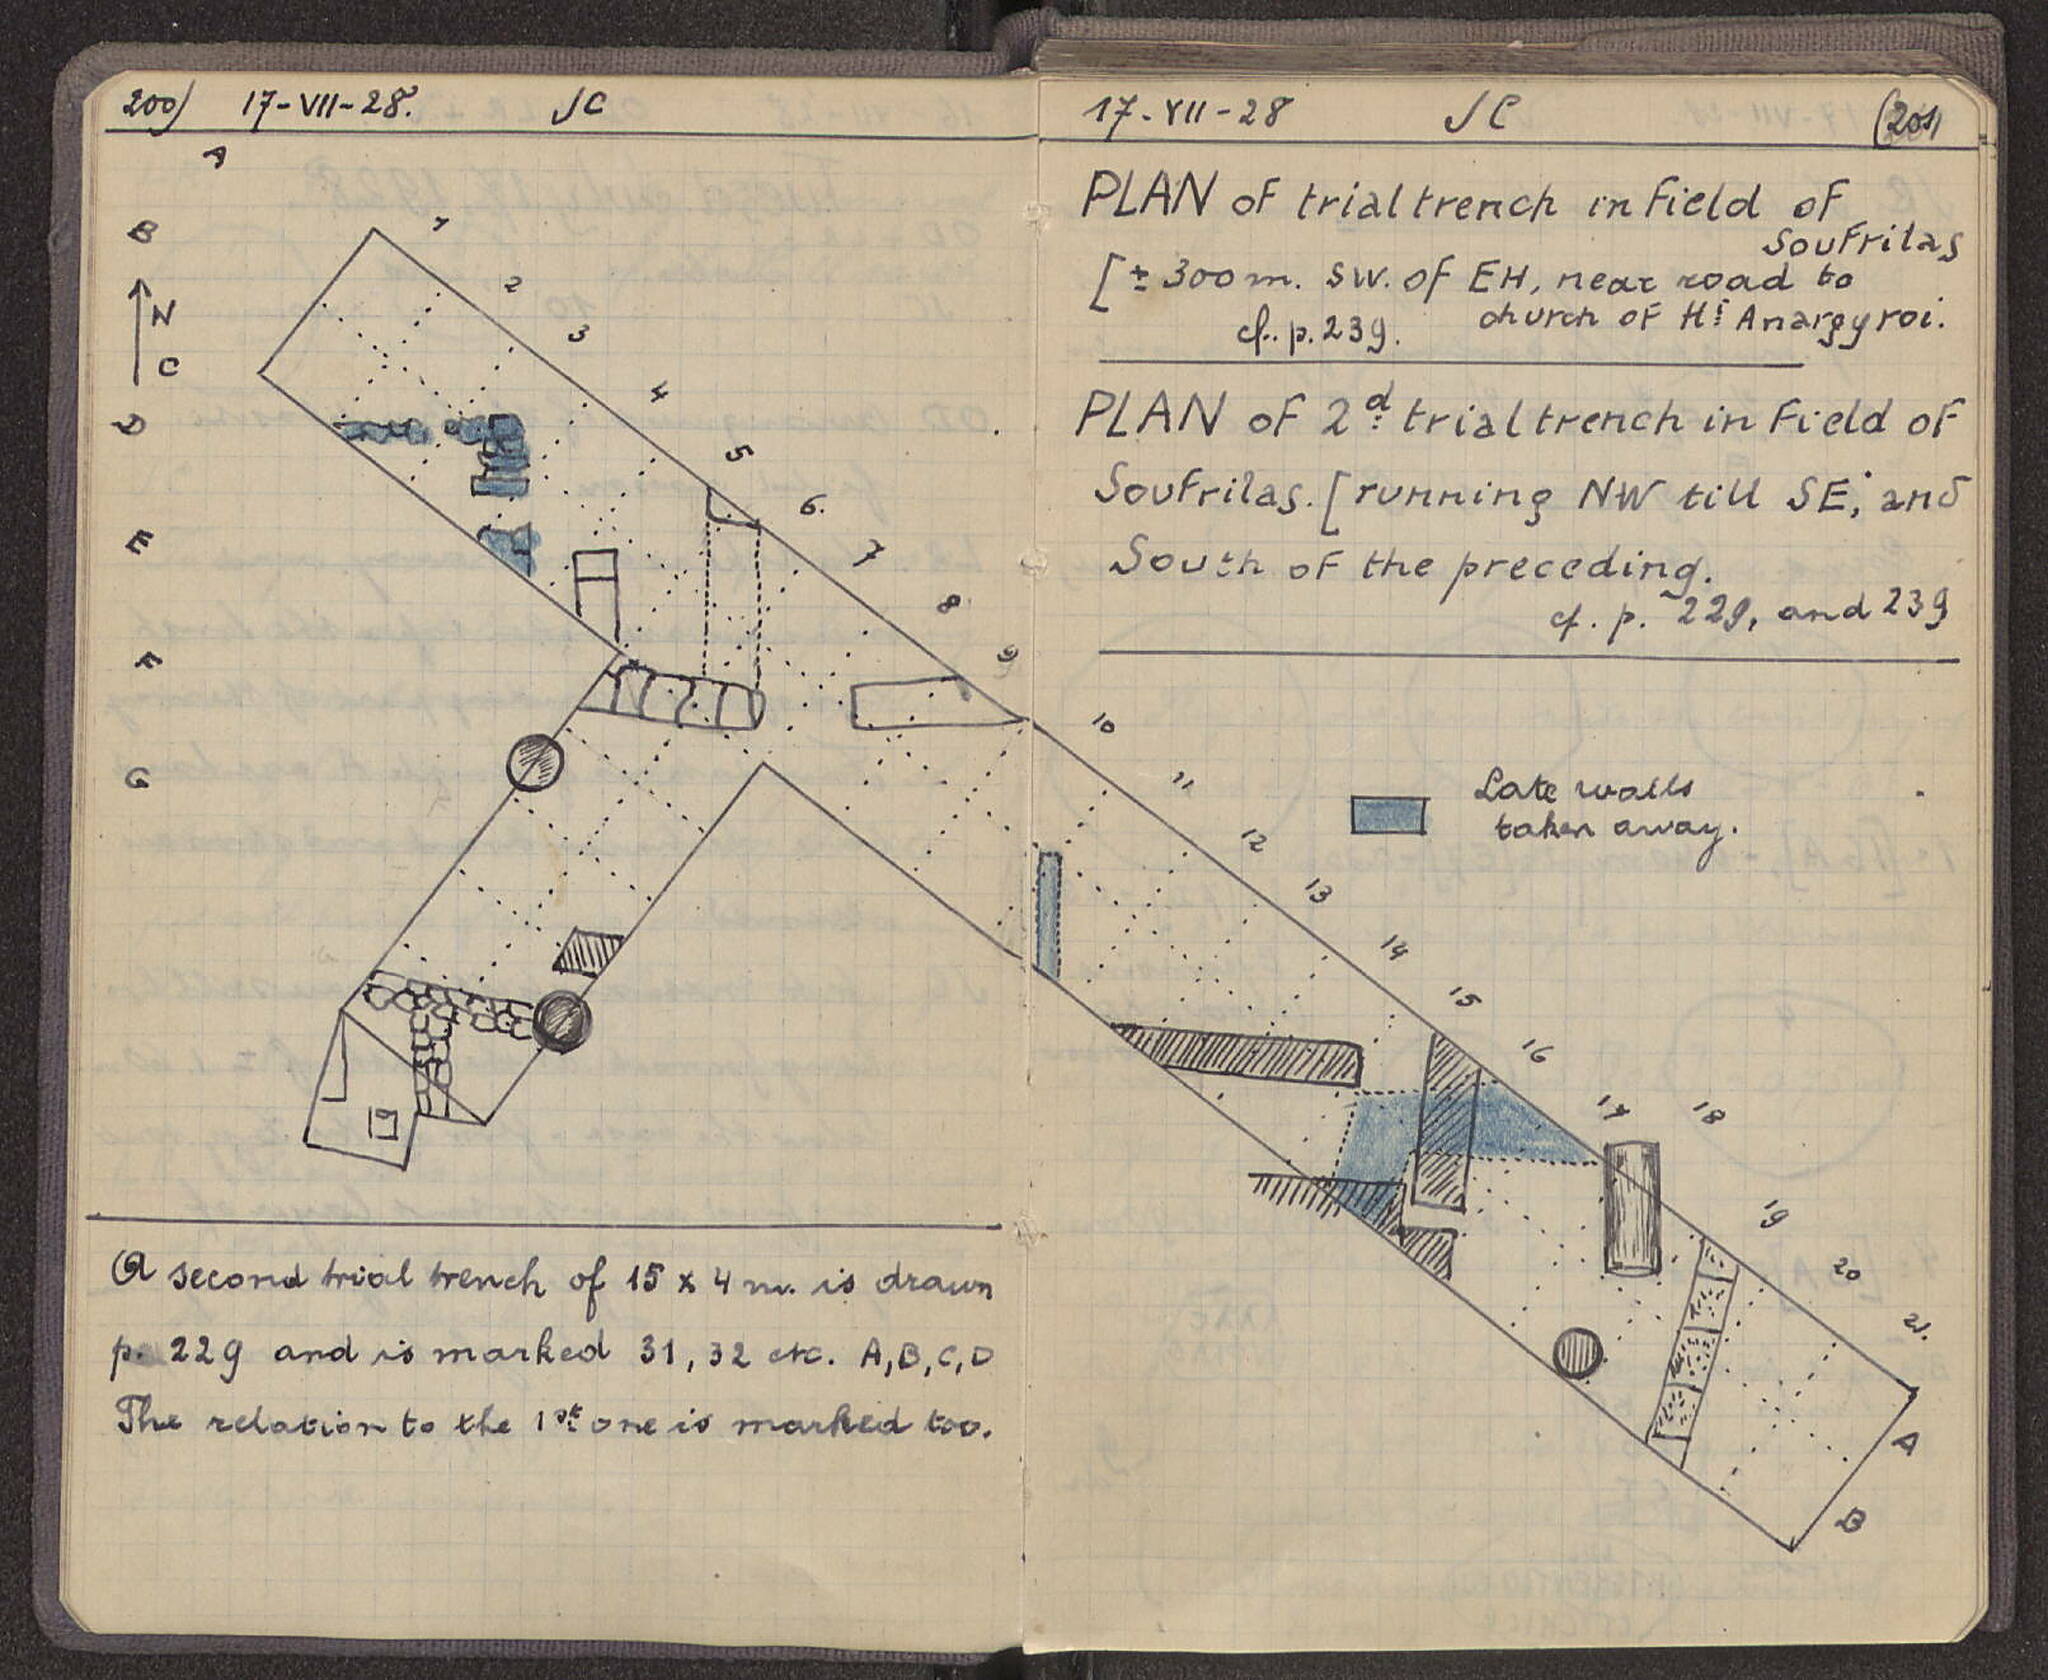 200) 17-VII-28. JC
A
B
N
C
D
E
F
G
1
2
3
4
5
6.
7
8
9
A second trial trench of 15 x 4 m. is drawn
p. 229 and is marked 31, 32 etc. A, B, C, D
The relation to the 1st one is marked too.
17-VII-28 JC (201
PLAN of trial trench in field of
Soufrilas
[± 300 m. SW. of EH, near road to
church of Hi Anargyroi.
cf. p. 239.
PLAN of 2d trial trench in field of
Soufrilas. [running NW till SE; and
South of the preceding.
cf. p. 229, and 239
Late walls
taken away.
10
11
12
13
14
15
16
17
18
19
20
21.
A
B